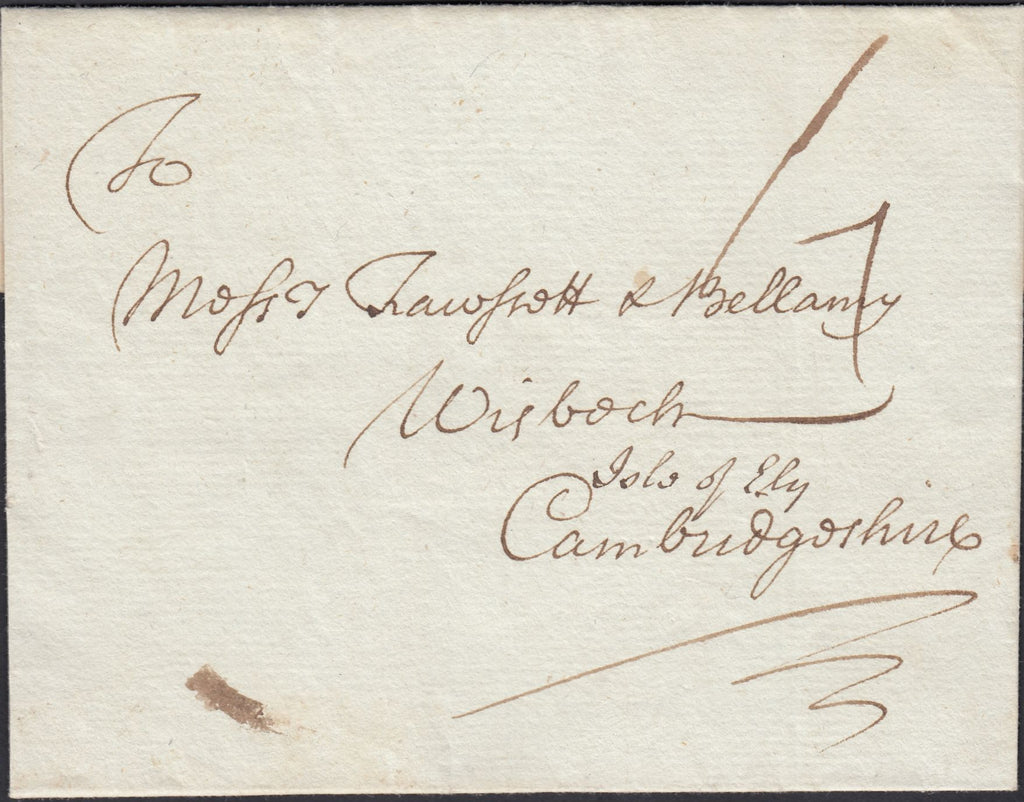 To
Messrs Fawssett & Bellamy
Wisbech
Isle of Ely
Cambridgeshire